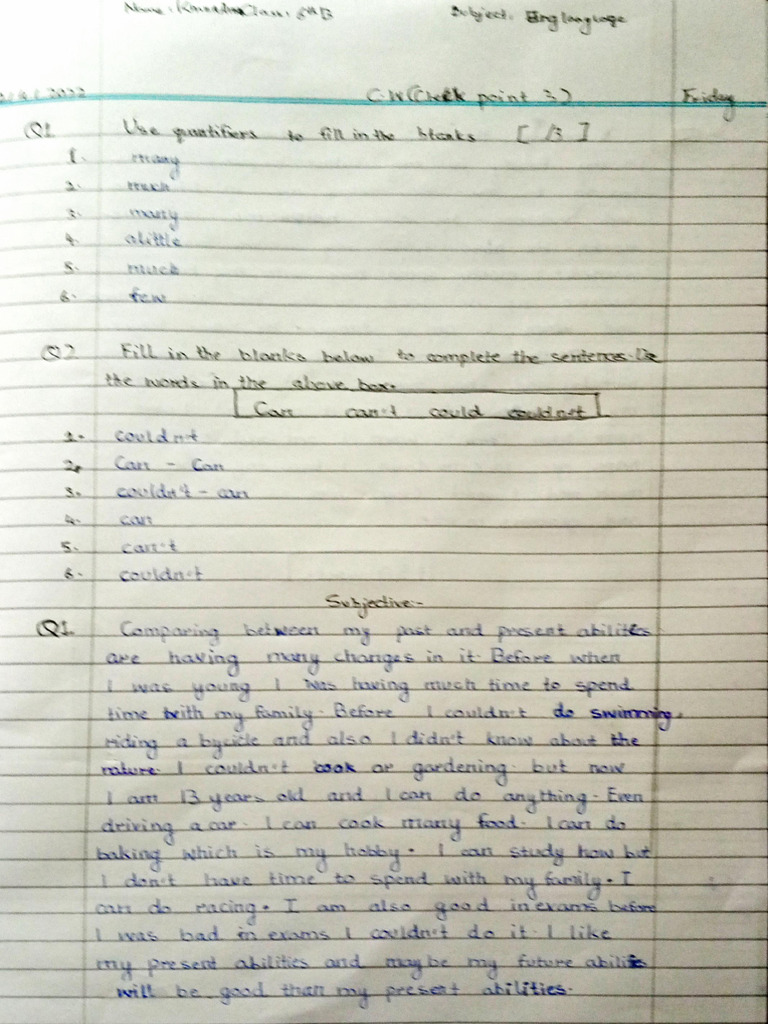 Name: Class: 6th B Subject: Eng language
/2022 C.W (Check point 3) Friday
Q1 Use quantifiers to fill in the blanks [ /3 ]
1. many
2. much
3. many
4. alittle
5. much
6. few
Q2 Fill in the blanks below to complete the sentences. Use
the words in the above box.
Can can't could couldn't
1. couldn't
2. Can - Can
3. couldn't - can
4. can
5. can't
6. couldn't
Subjective:-
Q1. Comparing between my past and present abilities
are having many changes in it. Before when
I was young I was having much time to spend
time with my family. Before I couldn't do swimming,
riding a bycicle and also I didn't know about the
nature. I couldn't cook or gardening. but now
I am 13 years old and I can do anything. Even
driving a car. I can cook many food. I can do
baking which is my hobby. I can study now but
I don't have time to spend with my family. I
can do racing. I am also good in exams before
I was bad in exams I couldn't do it. I like
my present abilities and maybe my future abilities
will be good than my present abilities.